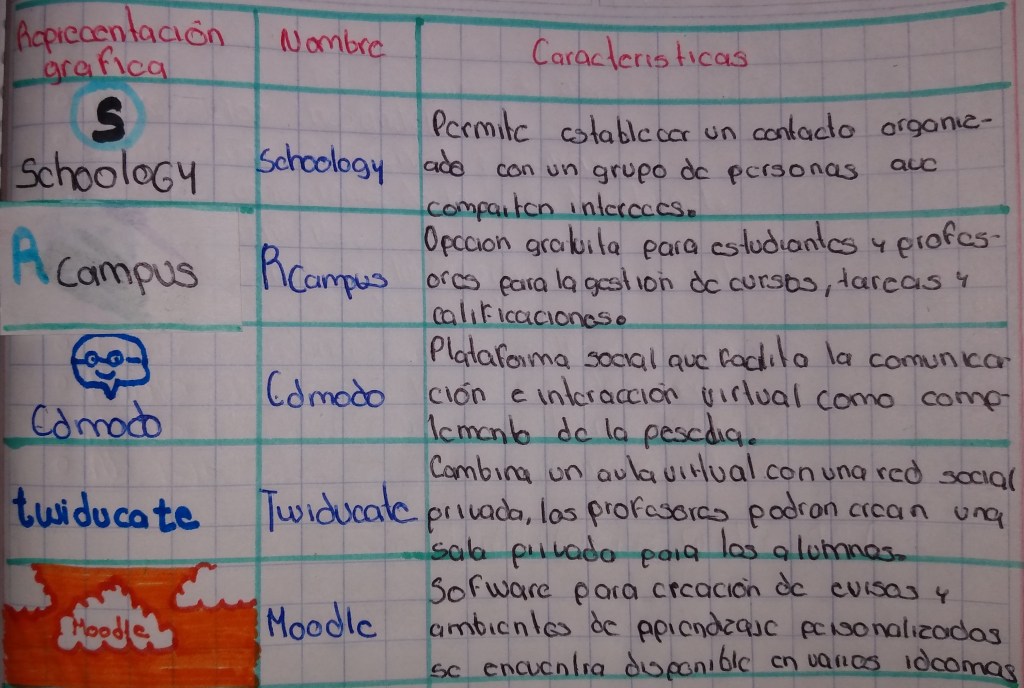 Representación
grafica
Nombre
Caracteristicas
S
SchooloGY
Schoology
Permite establecer un contacto organiz-
ado con un grupo de personas que
comparten intereces.
R Campus
RCampus
Opccion gratuita para estudiantes y profes-
ores para la gestion de cursos, tareas y
calificaciones.
Edmodo
Edmodo
Plataforma social que facilita la comunica
ción e interacción virtual como comp-
lemento de la
twiducate
Twiducate
Combina un aula virtual con una red social
privada, los profesores podran crean una
sala privada para los alumnos.
Moodle
Moodle
Sofware para creación de cursos y
ambientes de aprendizaje personalizados
se encuentra disponible en varios idiomas